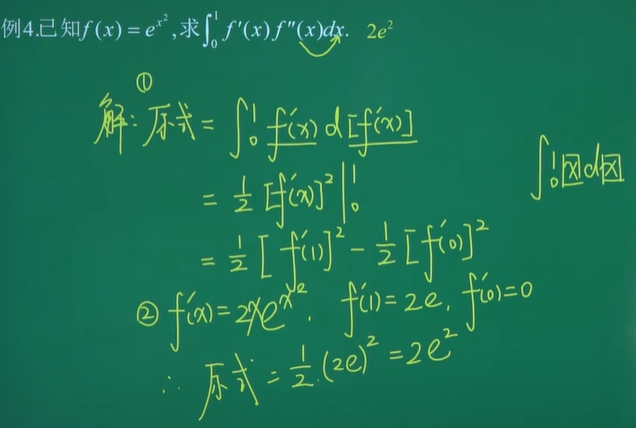 例4.已知f(x)=e^{x^2},求∫_0^1 f'(x)f''(x)dx. 2e^2
①
解:原式=∫_0^1 f'(x) d[f'(x)]
=1/2 [f'(x)]^2 |_0^1
∫_0^1 ☒d☒
=1/2 [f'(1)]^2 - 1/2 [f'(0)]^2
② f'(x)=2xe^{x^2}, f'(1)=2e, f'(0)=0
∴ 原式=1/2·(2e)^2=2e^2